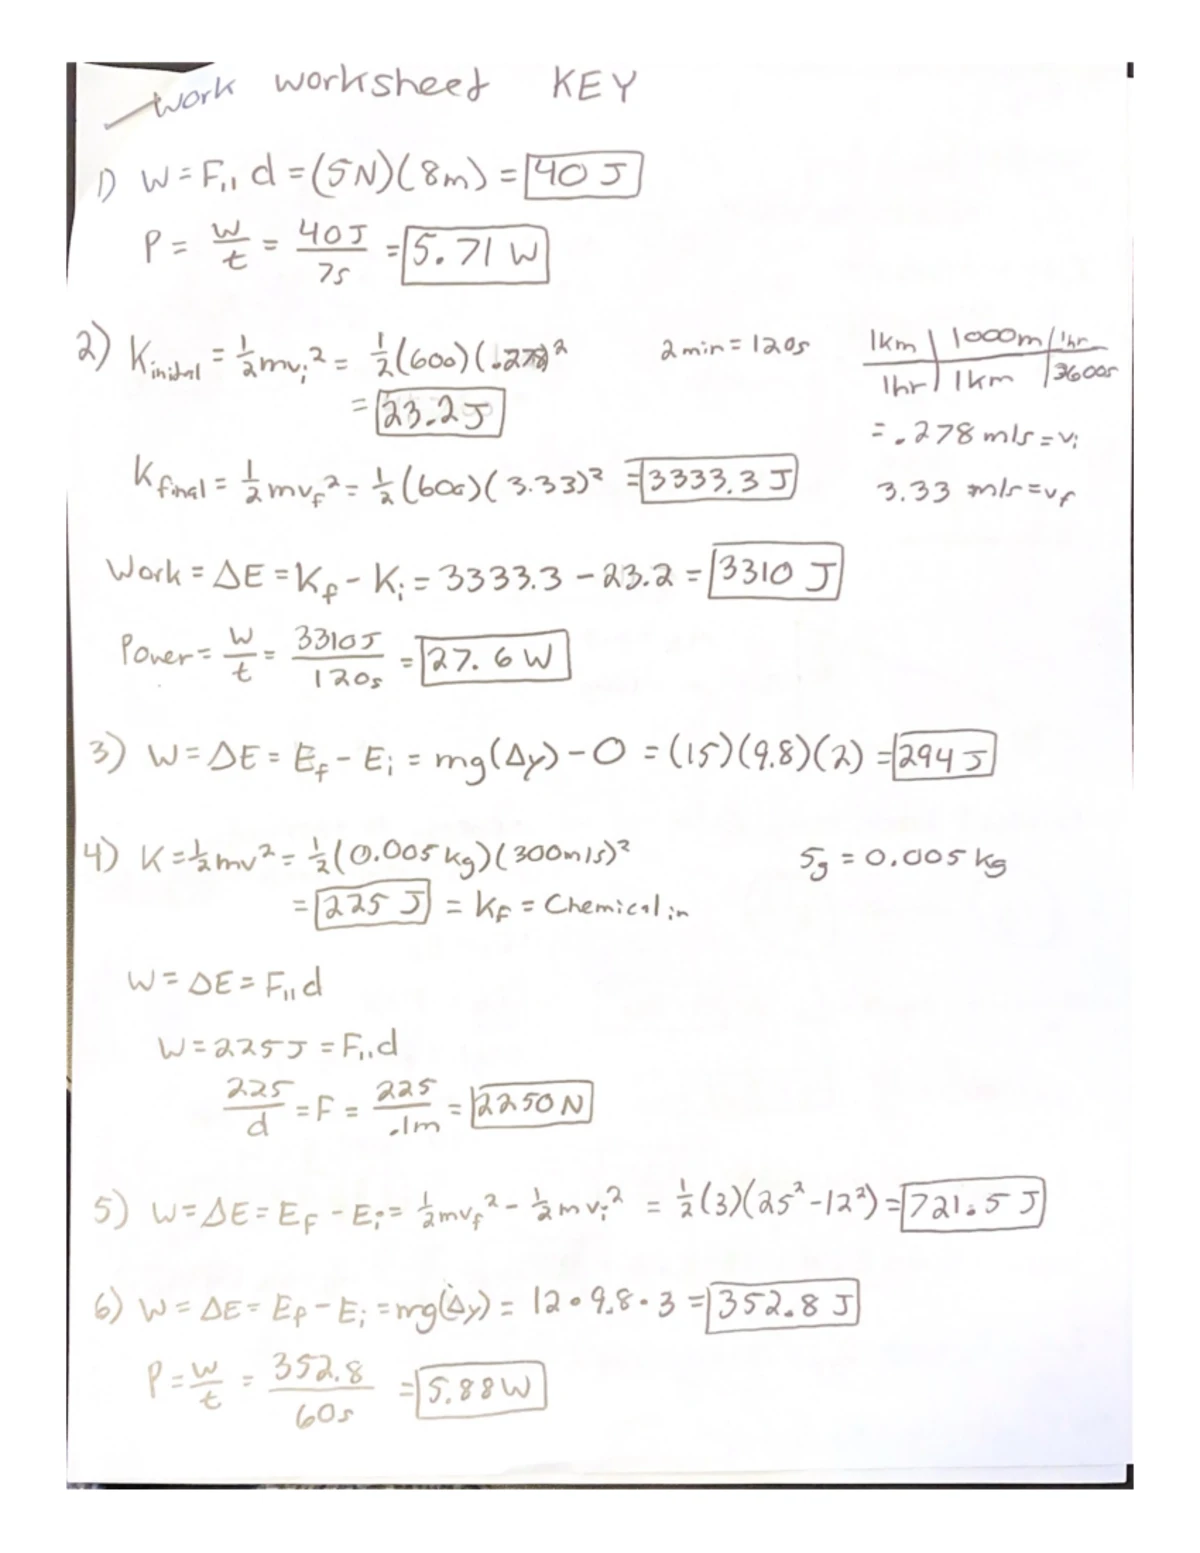 Work worksheet KEY
1) W = F₁₁ d = (5N)(8m) = 40 J
P = W/t = 40J/7s = 5.71 W
2) Kinitial = ½mvᵢ² = ½(600)(.278)² 2min = 120s 1km/1hr | 1000m/1km | 1hr/3600s
= 23.2J = .278 m/s = vᵢ
Kfinal = ½mv_f² = ½(600)(3.33)² = 3333.3 J 3.33 m/s = v_f
Work = ΔE = K_f - Kᵢ = 3333.3 - 23.2 = 3310 J
Power = W/t = 3310J/120s = 27.6 W
3) W = ΔE = E_f - Eᵢ = mg(Δy) - 0 = (15)(9.8)(2) = 294 J
4) K = ½mv² = ½(0.005 kg)(300m/s)² 5g = 0.005 kg
= 225 J = K_f = Chemical in
W = ΔE = F₁₁ d
W = 225J = F₁₁ d
225/d = F = 225/.1m = 2250 N
5) W = ΔE = E_f - Eᵢ = ½mv_f² - ½mvᵢ² = ½(3)(25² - 12²) = 721.5 J
6) W = ΔE = E_f - Eᵢ = mg(Δy) = 12 • 9.8 • 3 = 352.8 J
P = W/t = 352.8/60s = 5.88 W